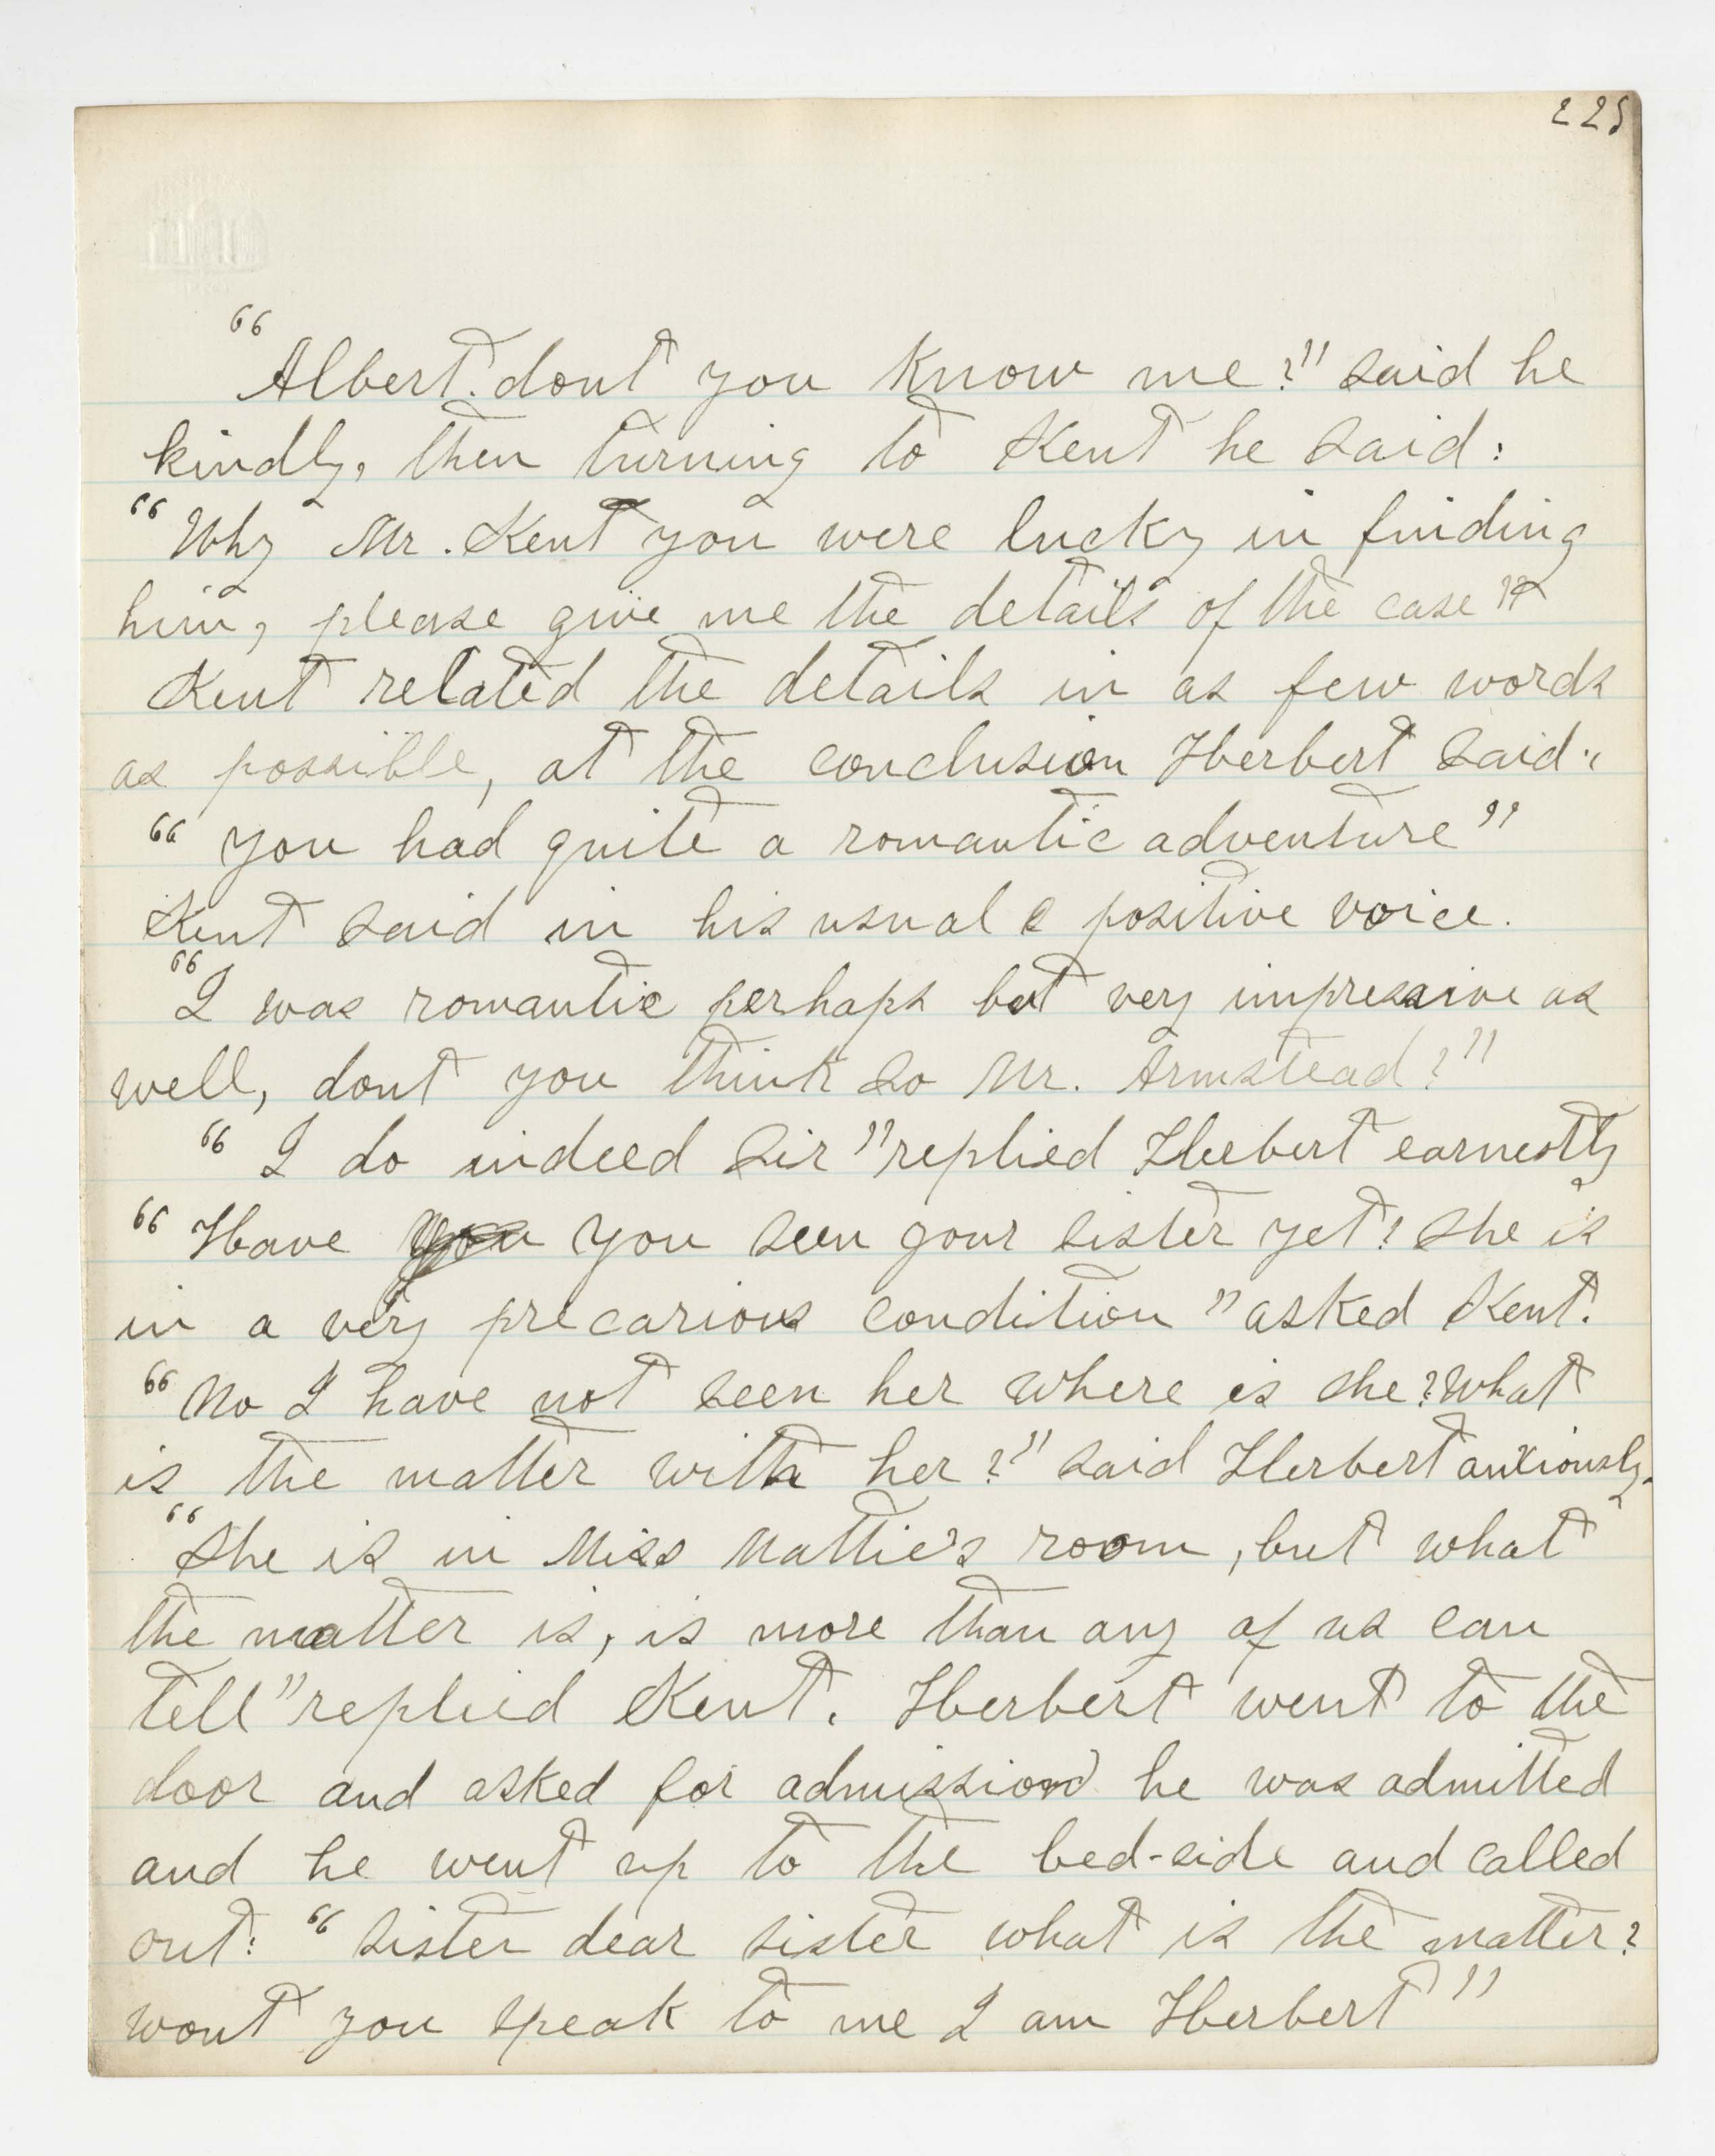 225
"Albert. dont you know me?" said he
kindly, then turning to Kent he said:
"Why Mr. Kent you were lucky in finding
him, please give me the details of the case"
Kent related the details in as few words
as possible, at the conclusion Herbert said:
"you had quite a romantic adventure"
Kent said in his usual positive voice.
"I was romantic perhaps but very impressive as
well, dont you think so Mr. Armstead?"
"I do indeed sir" replied Herbert earnestly
"Have you seen your sister yet? she is
in a very precarious condition" asked Kent.
"No I have not seen her where is she? What
is the matter with her?" said Herbert anxiously.
"She is in Miss Mattie's room, but what
the matter is, is more than any of us can
tell" replied Kent. Herbert went to the
door and asked for admission he was admitted
and he went up to the bed-side and called
out: "sister dear sister what is the matter?
wont you speak to me I am Herbert"